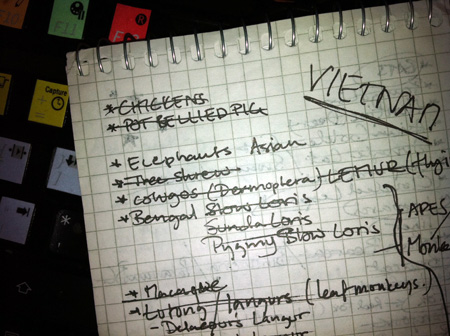 F10
F11
Capture
VIETNAM
* CHICKENS
* POT BELLIED PIG
* Elephants Asian
* Tree shrew
* colugos (Dermoptera) LEMUR
* Bengal Slow Loris
Sunda Loris
Pygmy Slow Loris
APES
* Macaque
Lutong / langurs (leaf monkeys.)
- Delacours Langur